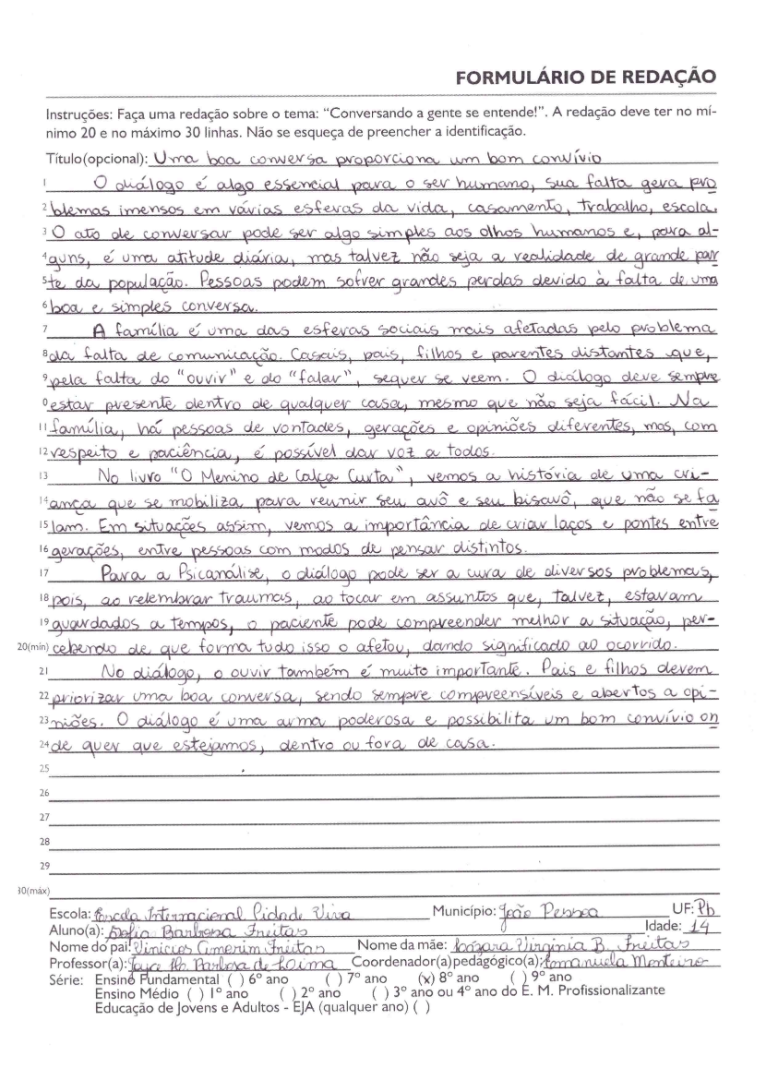 FORMULÁRIO DE REDAÇÃO
Instruções: Faça uma redação sobre o tema: "Conversando a gente se entende!". A redação deve ter no mí-
nimo 20 e no máximo 30 linhas. Não se esqueça de preencher a identificação.
Título(opcional): Uma boa conversa proporciona um bom convívio
1 O diálogo é algo essencial para o ser humano, sua falta gera pro
2 blemas imensos em várias esferas da vida, casamento, trabalho, escola.
3 O ato de conversar pode ser algo simples aos olhos humanos e, para al-
4 guns, é uma atitude diária, mas talvez não seja a realidade de grande par
5 te da população. Pessoas podem sofrer grandes perdas devido à falta de uma
6 boa e simples conversa.
7 A família é uma das esferas sociais mais afetadas pelo problema
8 da falta de comunicação. Casais, pais, filhos e parentes distantes que,
9 pela falta do "ouvir" e do "falar", sequer se veem. O diálogo deve sempre
0 estar presente dentro de qualquer casa, mesmo que não seja fácil. Na
11 família, há pessoas de vontades, gerações e opiniões diferentes, mas, com
12 respeito e paciência, é possível dar voz a todos.
13 No livro "O Menino de Calça Curta", vemos a história de uma cri-
14 ança que se mobiliza para reunir seu avô e seu bisavô, que não se fa
15 lam. Em situações assim, vemos a importância de criar laços e pontes entre
16 gerações, entre pessoas com modos de pensar distintos.
17 Para a Psicanálise, o diálogo pode ser a cura de diversos problemas,
18 pois, ao relembrar traumas, ao tocar em assuntos que, talvez, estavam
19 guardados a tempos, o paciente pode compreender melhor a situação, per-
20(mín) cebendo de que forma tudo isso o afetou, dando significado ao ocorrido.
21 No diálogo, o ouvir também é muito importante. Pais e filhos devem
22 priorizar uma boa conversa, sendo sempre compreensíveis e abertos a opi-
23 niões. O diálogo é uma arma poderosa e possibilita um bom convívio on
24 de quer que estejamos, dentro ou fora de casa.
25
26
27
28
29
30(máx)
Escola: Escola Internacional Cidade Viva Município: João Pessoa UF: Pb
Aluno(a): Sofia Barbosa Freitas Idade: 14
Nome do pai: Vinicius Amorim Freitas Nome da mãe: Virginia B. Freitas
Professor(a): Barbosa de Coordenador(a)pedagógico(a): Monteiro
Série: Ensino Fundamental ( ) 6º ano ( ) 7º ano (x) 8º ano ( ) 9º ano
Ensino Médio ( ) 1º ano ( ) 2º ano ( ) 3º ano ou 4º ano do E. M. Profissionalizante
Educação de Jovens e Adultos - EJA (qualquer ano) ( )